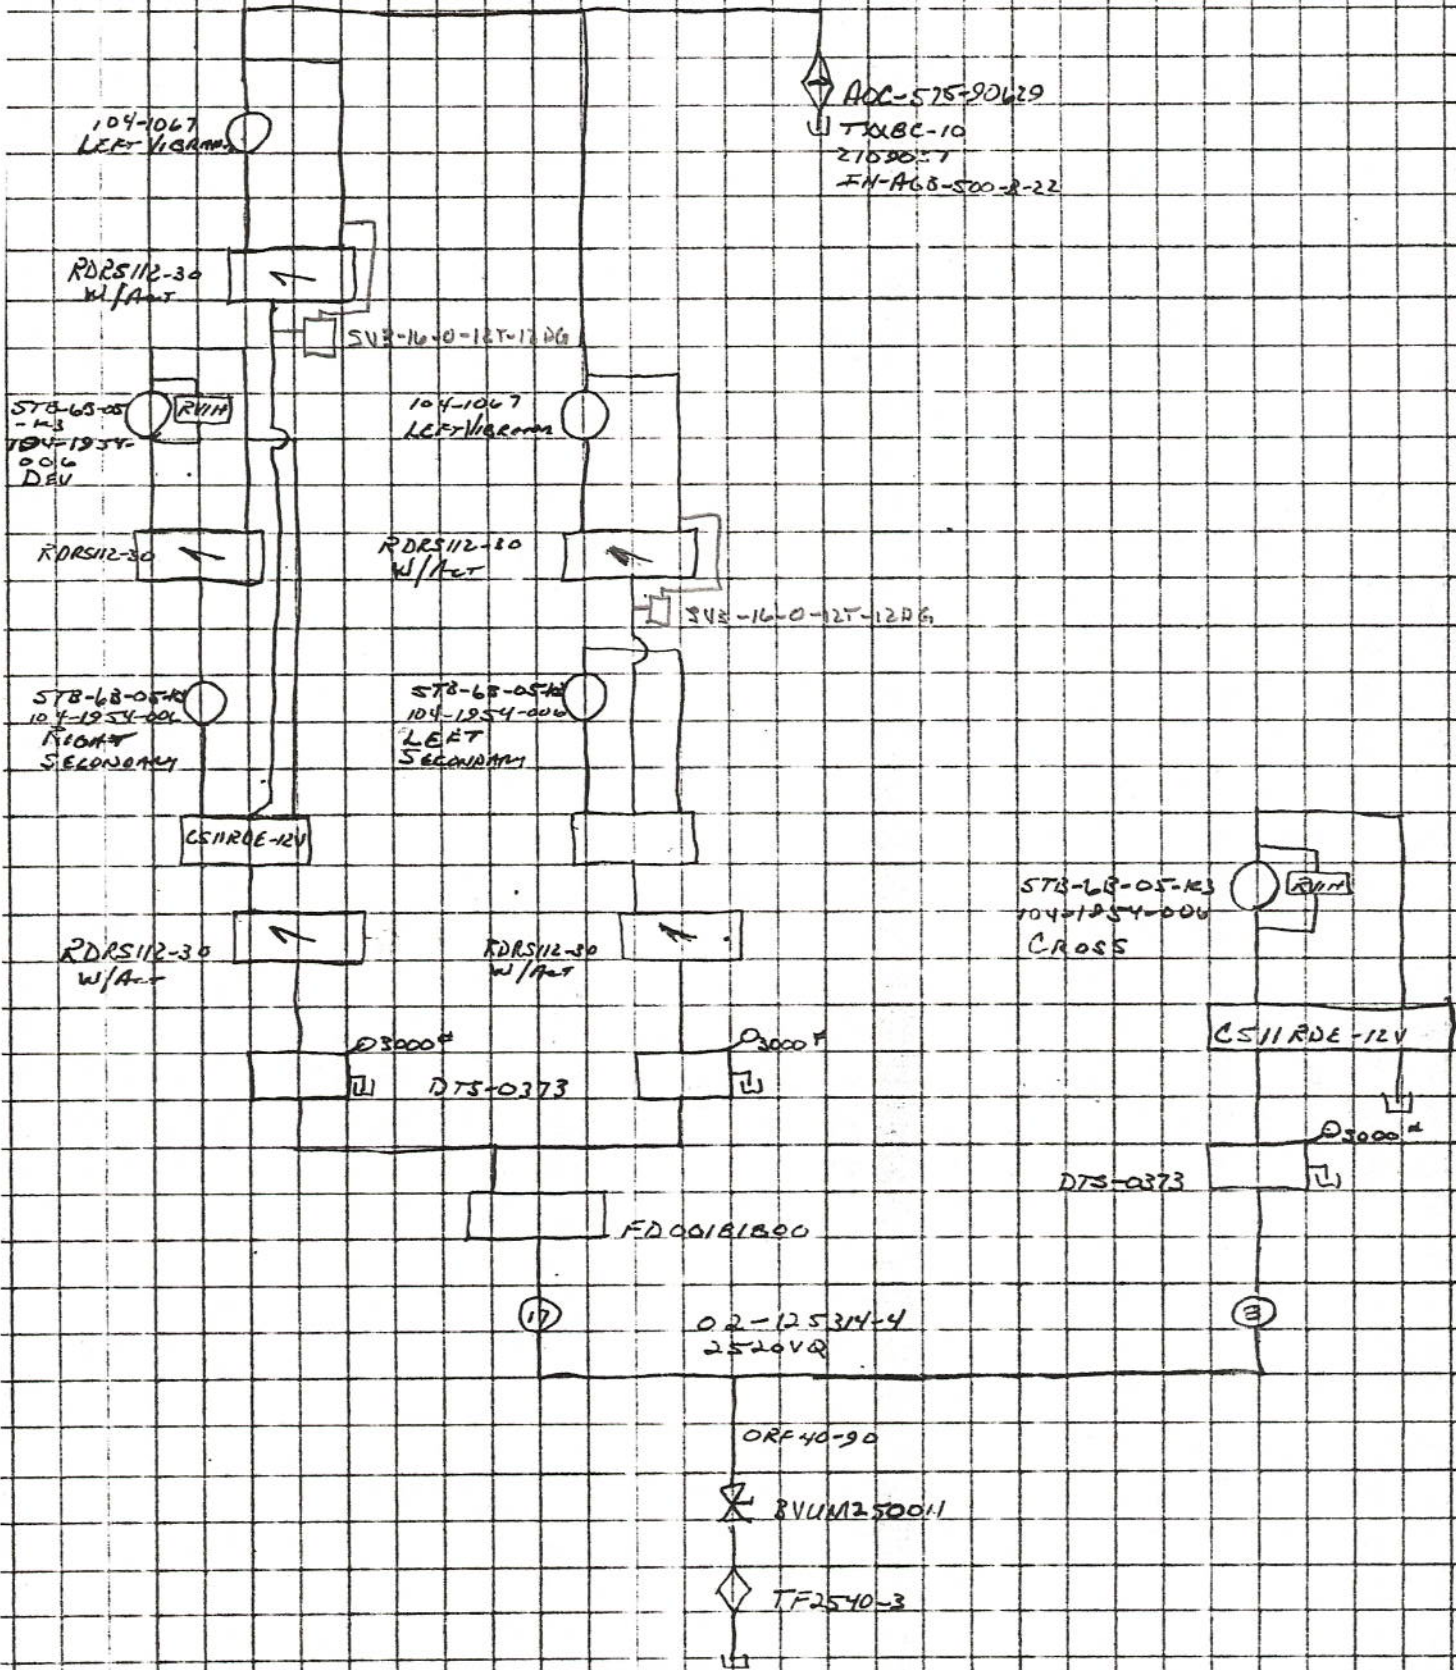 AOC-575-90629
104-1067
LEFT
IN-AGB-500-8-22
RDRS112-30
W/Act
SV3-16-0-12T-12DG
STB-6B-05
-K3
104-1954-
006
DEV
RV1H
104-1067
LEFT
RDRS112-30
RDRS112-30
W/Act
SV3-16-0-12T-12DG
STB-6B-05-K3
104-1954-006
RIGHT
SECONDARY
STB-6B-05-K3
104-1954-006
LEFT
SECONDARY
CS11RDE-12V
STB-6B-05-K3
104-1954-006
CROSS
RV1H
RDRS112-30
W/Act
RDRS112-30
W/Act
CS11RDE-12V
3000#
DTS-0373
3000#
3000#
DTS-0373
FD001B1B00
17
02-125314-4
2520VQ
3
ORF 40-90
BVUM2500N
TF2540-3